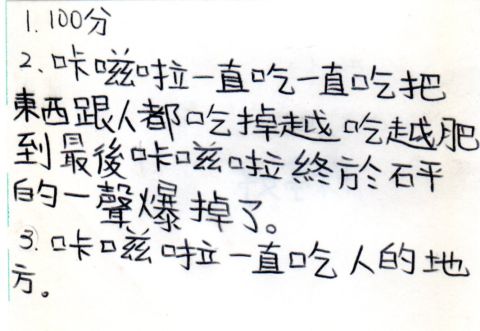 1. 100分
2、咔嗞啦一直吃一直吃把
東西跟人都吃掉越吃越肥
到最後咔嗞啦終於砰
的一聲爆掉了。
3. 咔嗞啦一直吃人的地
方。